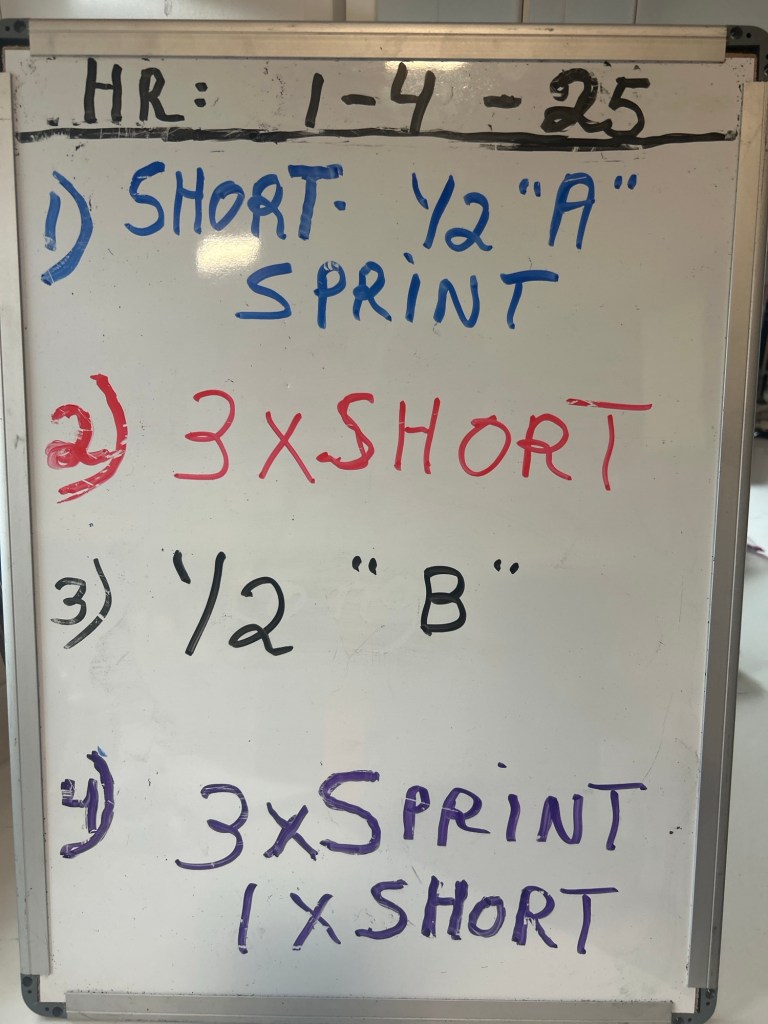 HR: 1-4-25
1) SHORT. 1/2 "A"
SPRINT
2) 3 X SHORT
3) 1/2 "B"
4) 3 x SPRINT
1 X SHORT